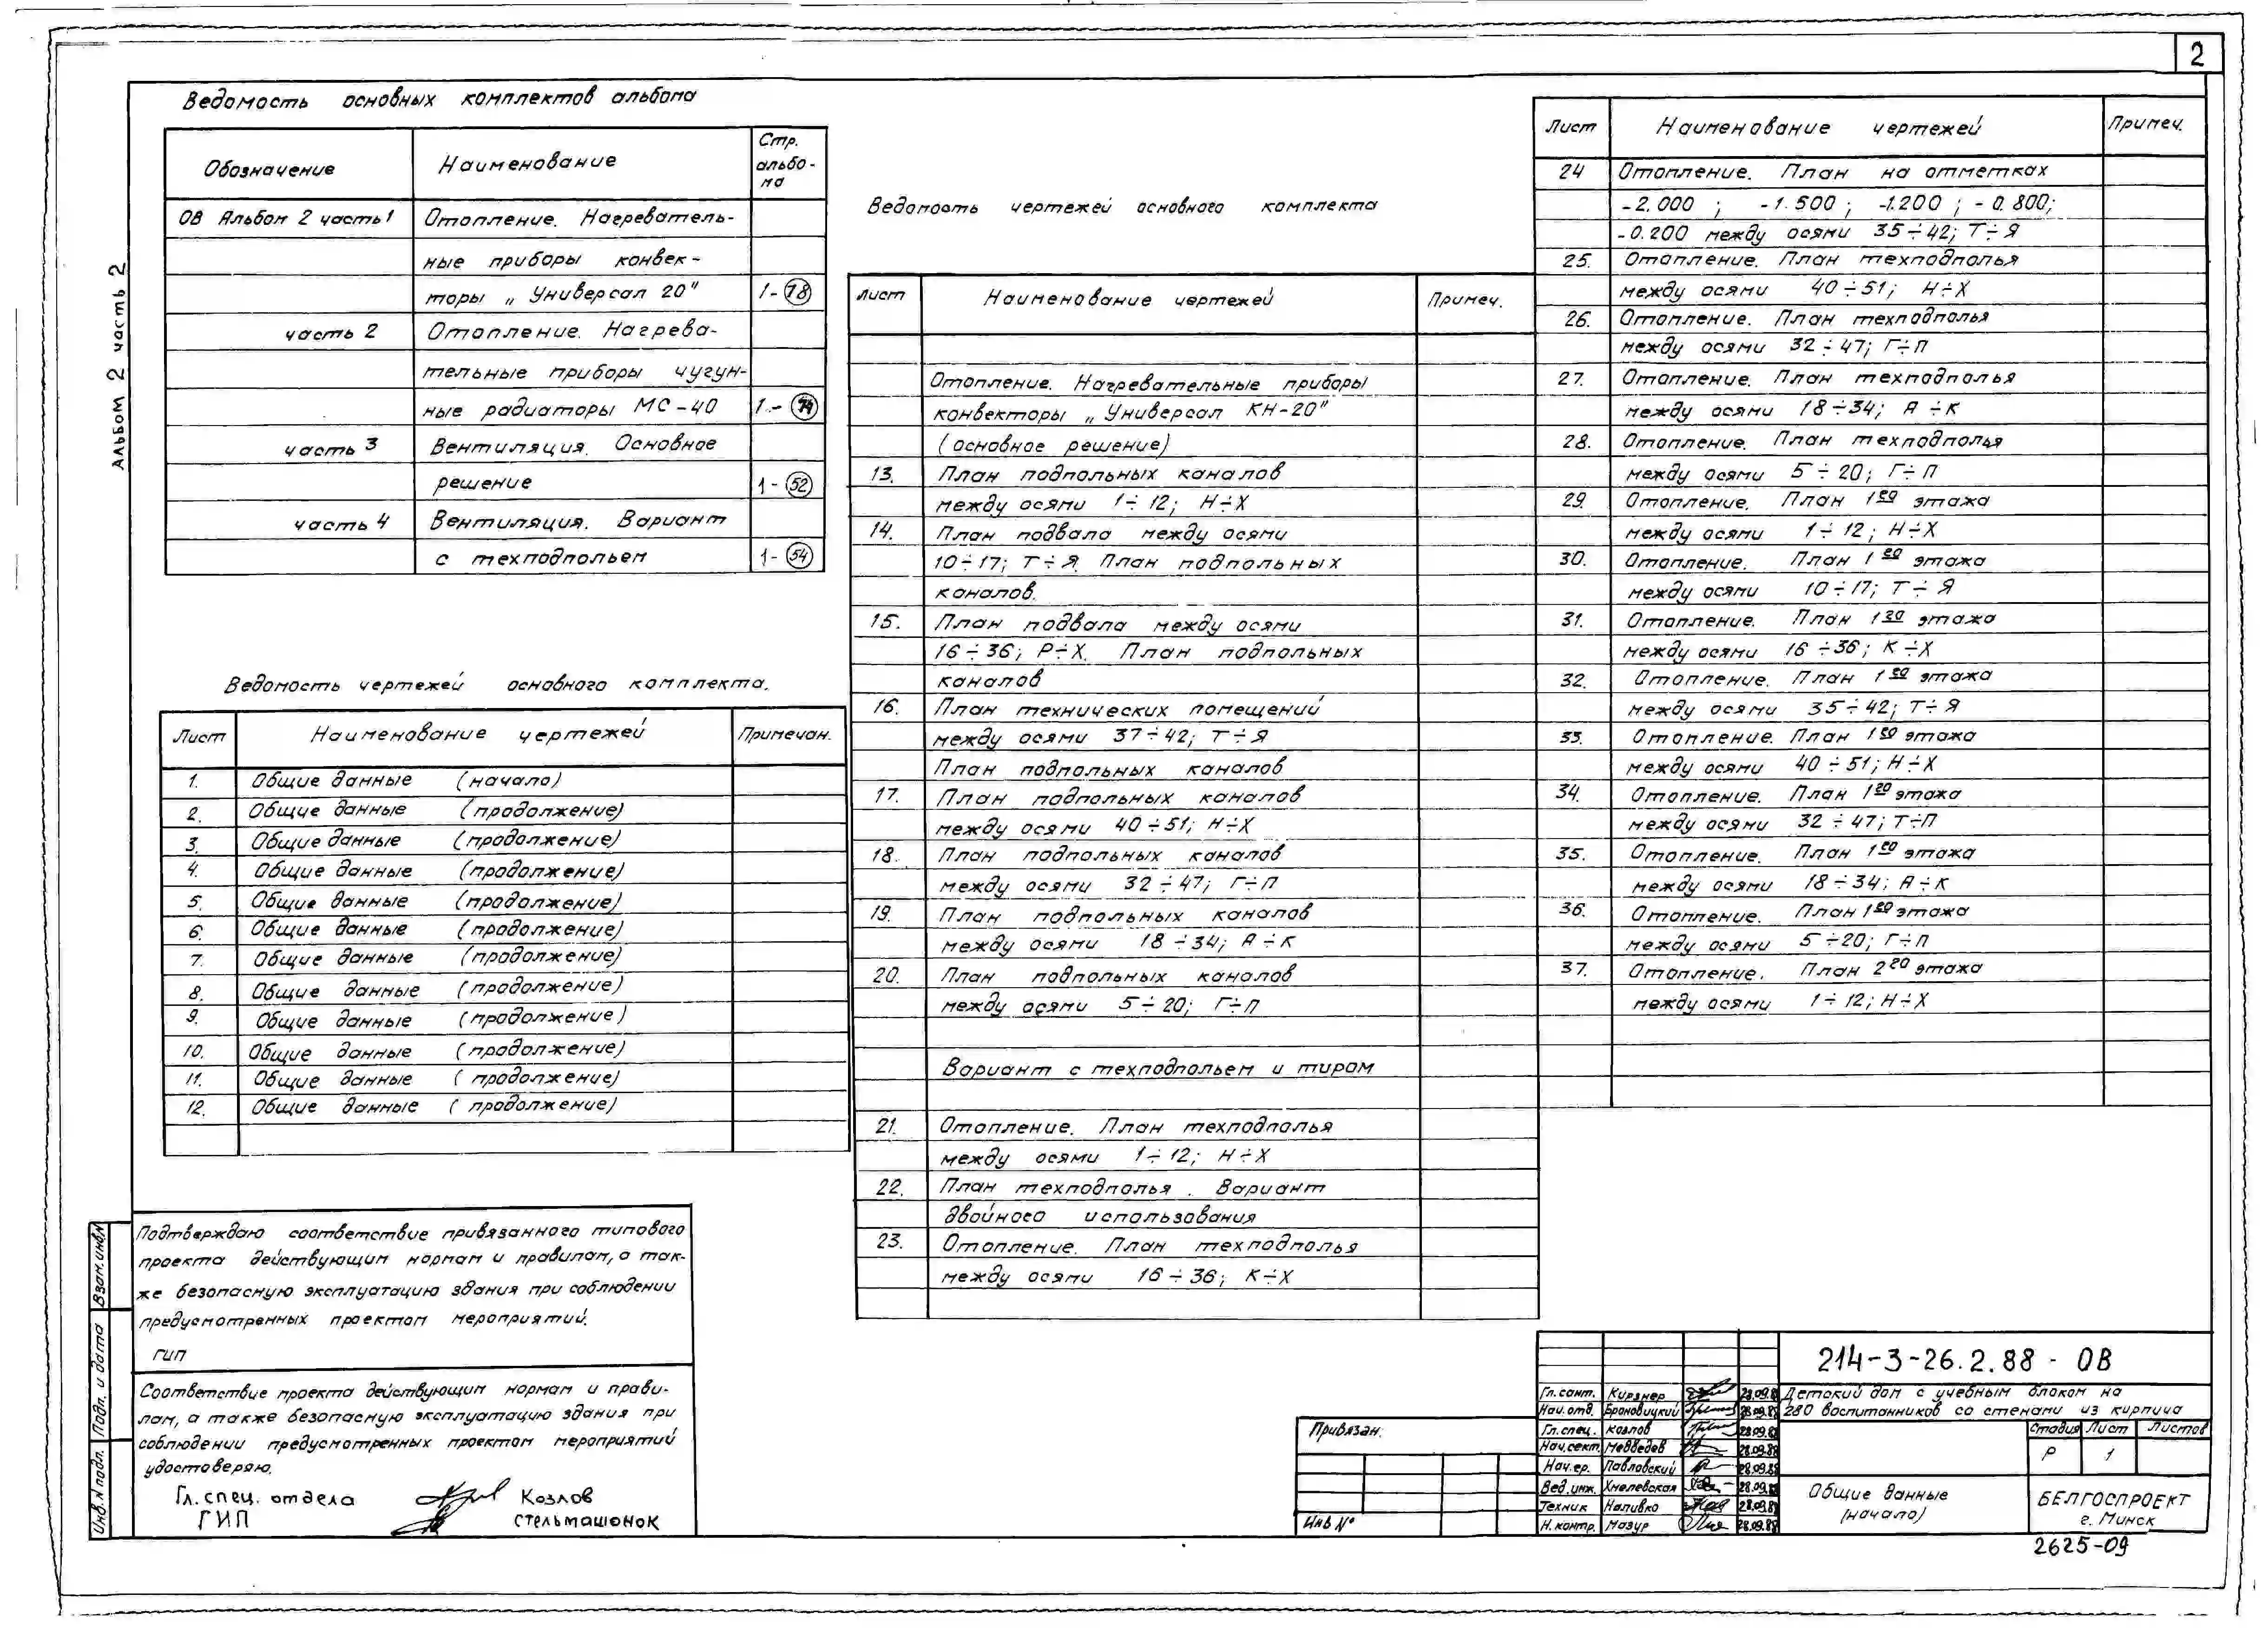 2
Альбом 2 часть 2
Ведомость основных комплектов альбома
Обозначение
Наименование
Стр. альбо-
ма
ОВ Альбом 2 часть 1
Отопление. Нагреватель-
ные приборы конвек-
торы „Универсал 20"
1-78
часть 2
Отопление. Нагрева-
тельные приборы чугун-
ные радиаторы МС-40
1-74
часть 3
Вентиляция. Основное
решение
1-52
часть 4
Вентиляция. Вариант
с техподпольем
1-54
Ведомость чертежей основного комплекта.
Лист
Наименование чертежей
Примечан.
1. Общие данные (начало)
2. Общие данные (продолжение)
3. Общие данные (продолжение)
4. Общие данные (продолжение)
5. Общие данные (продолжение)
6. Общие данные (продолжение)
7. Общие данные (продолжение)
8. Общие данные (продолжение)
9. Общие данные (продолжение)
10. Общие данные (продолжение)
11. Общие данные (продолжение)
12. Общие данные (продолжение)
Подтверждаю соответствие привязанного типового
проекта действующим нормам и правилам, а так-
же безопасную эксплуатацию здания при соблюдении
предусмотренных проектом мероприятий.
ГИП
Соответствие проекта действующим нормам и прави-
лам, а также безопасную эксплуатацию здания при
соблюдении предусмотренных проектом мероприятий
удостоверяю.
Гл. спец. отдела Козлов
ГИП Стельмашонок
Взам. инв.N
Подп. и дата
Инв. N подл.
Ведомость чертежей основного комплекта
Лист
Наименование чертежей
Примеч.
Отопление. Нагревательные приборы
конвекторы „Универсал КН-20"
(основное решение)
13. План подпольных каналов
между осями 1÷12; Н÷Х
14. План подвала между осями
10÷17; Т÷Я. План подпольных
каналов.
15. План подвала между осями
16÷36; Р÷Х. План подпольных
каналов
16. План технических помещений
между осями 37÷42; Т÷Я
План подпольных каналов
17. План подпольных каналов
между осями 40÷51; Н÷Х
18. План подпольных каналов
между осями 32÷47; Г÷П
19. План подпольных каналов
между осями 18÷34; А÷К
20. План подпольных каналов
между осями 5÷20; Г÷П
Вариант с техподпольем и тиром
21. Отопление. План техподполья
между осями 1÷12; Н÷Х
22. План техподполья. Вариант
двойного использования
23. Отопление. План техподполья
между осями 16÷36; К÷Х
Лист
Наименование чертежей
Примеч.
24 Отопление. План на отметках
-2.000; -1.500; -1.200; -0.800;
-0.200 между осями 35÷42; Т÷Я
25. Отопление. План техподполья
между осями 40÷51; Н÷Х
26. Отопление. План техподполья
между осями 32÷47; Г÷П
27. Отопление. План техподполья
между осями 18÷34; А÷К
28. Отопление. План техподполья
между осями 5÷20; Г÷П
29. Отопление. План 1го этажа
между осями 1÷12; Н÷Х
30. Отопление. План 1го этажа
между осями 10÷17; Т÷Я
31. Отопление. План 1го этажа
между осями 16÷36; К÷Х
32. Отопление. План 1го этажа
между осями 35÷42; Т÷Я
33. Отопление. План 1го этажа
между осями 40÷51; Н÷Х
34. Отопление. План 1го этажа
между осями 32÷47; Т÷П
35. Отопление. План 1го этажа
между осями 18÷34; А÷К
36. Отопление. План 1го этажа
между осями 5÷20; Г÷П
37. Отопление. План 2го этажа
между осями 1÷12; Н÷Х
Привязан:
Инв N°
Гл. сант. Кирзнер 28.09.8
Нач. отд. Броновицкий 28.09.88
Гл. спец. Козлов 28.09.88
Нач. сект. Медведев 28.09.88
Нач. гр. Павловский 28.09.88
Вед. инж. Хмелевская 28.09.88
Техник Наливко 28.09.88
Н. контр. Мазур 28.09.88
214-3-26.2.88 - ОВ
Детский дом с учебным блоком на
280 воспитанников со стенами из кирпича
Стадия Лист Листов
Р 1
Общие данные
(начало)
БЕЛГОСПРОЕКТ
г. Минск
2625-09